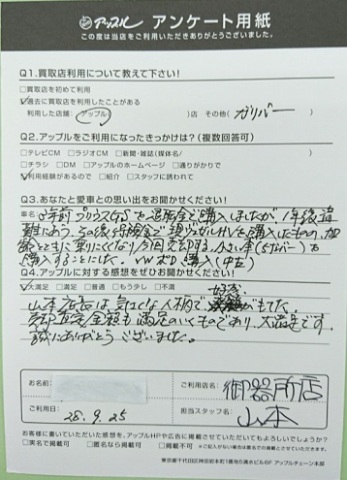 アップル アンケート用紙
この度は当店をご利用いただきありがとうございました。
Q1.買取店利用について教えて下さい!
□買取店を初めて利用
☑過去に買取店を利用したことがある
利用した店舗( アップル )店 その他( ガリバー )
Q2.アップルをご利用になったきっかけは?(複数回答可)
□テレビCM □ラジオCM □新聞・雑誌(媒体名/ )
□チラシ □DM □アップルのホームページ □通りがかりで
☑利用経験があるので □紹介 □スタッフに誘われて
Q3.あなたと愛車との思い出をお聞かせください!
車名
購入しましたが、1年後盗
難にあう、その後 HVを購入したものの、加
齢とともに乗りにくくなり今回売却する。小さい車(5ナンバー)を
購入することにした。VWポロ購入(中古)
Q4.アップルに対する感想をぜひお聞かせください!
☑大満足 □満足 □普通 □もう少し □不満
山本店長は気さくな人柄で好感がもてた。
売却査定金額も満足のいくものであり、大満足です。
誠にありがとうございました。
お名前
ご利用店名:御器所店
ご利用日:28.9.25
担当スタッフ名:山本
お客様に書いていただいた感想を、アップルHPや広告に掲載させていただいてもよろしいでしょうか?
□実名で掲載可 □匿名なら掲載可 □不可
※ご記入がない場合は匿名での掲載とさせていただきます。
東京都千代田区神田岩本町1番地5清水ビル6F アップルチェーン本部